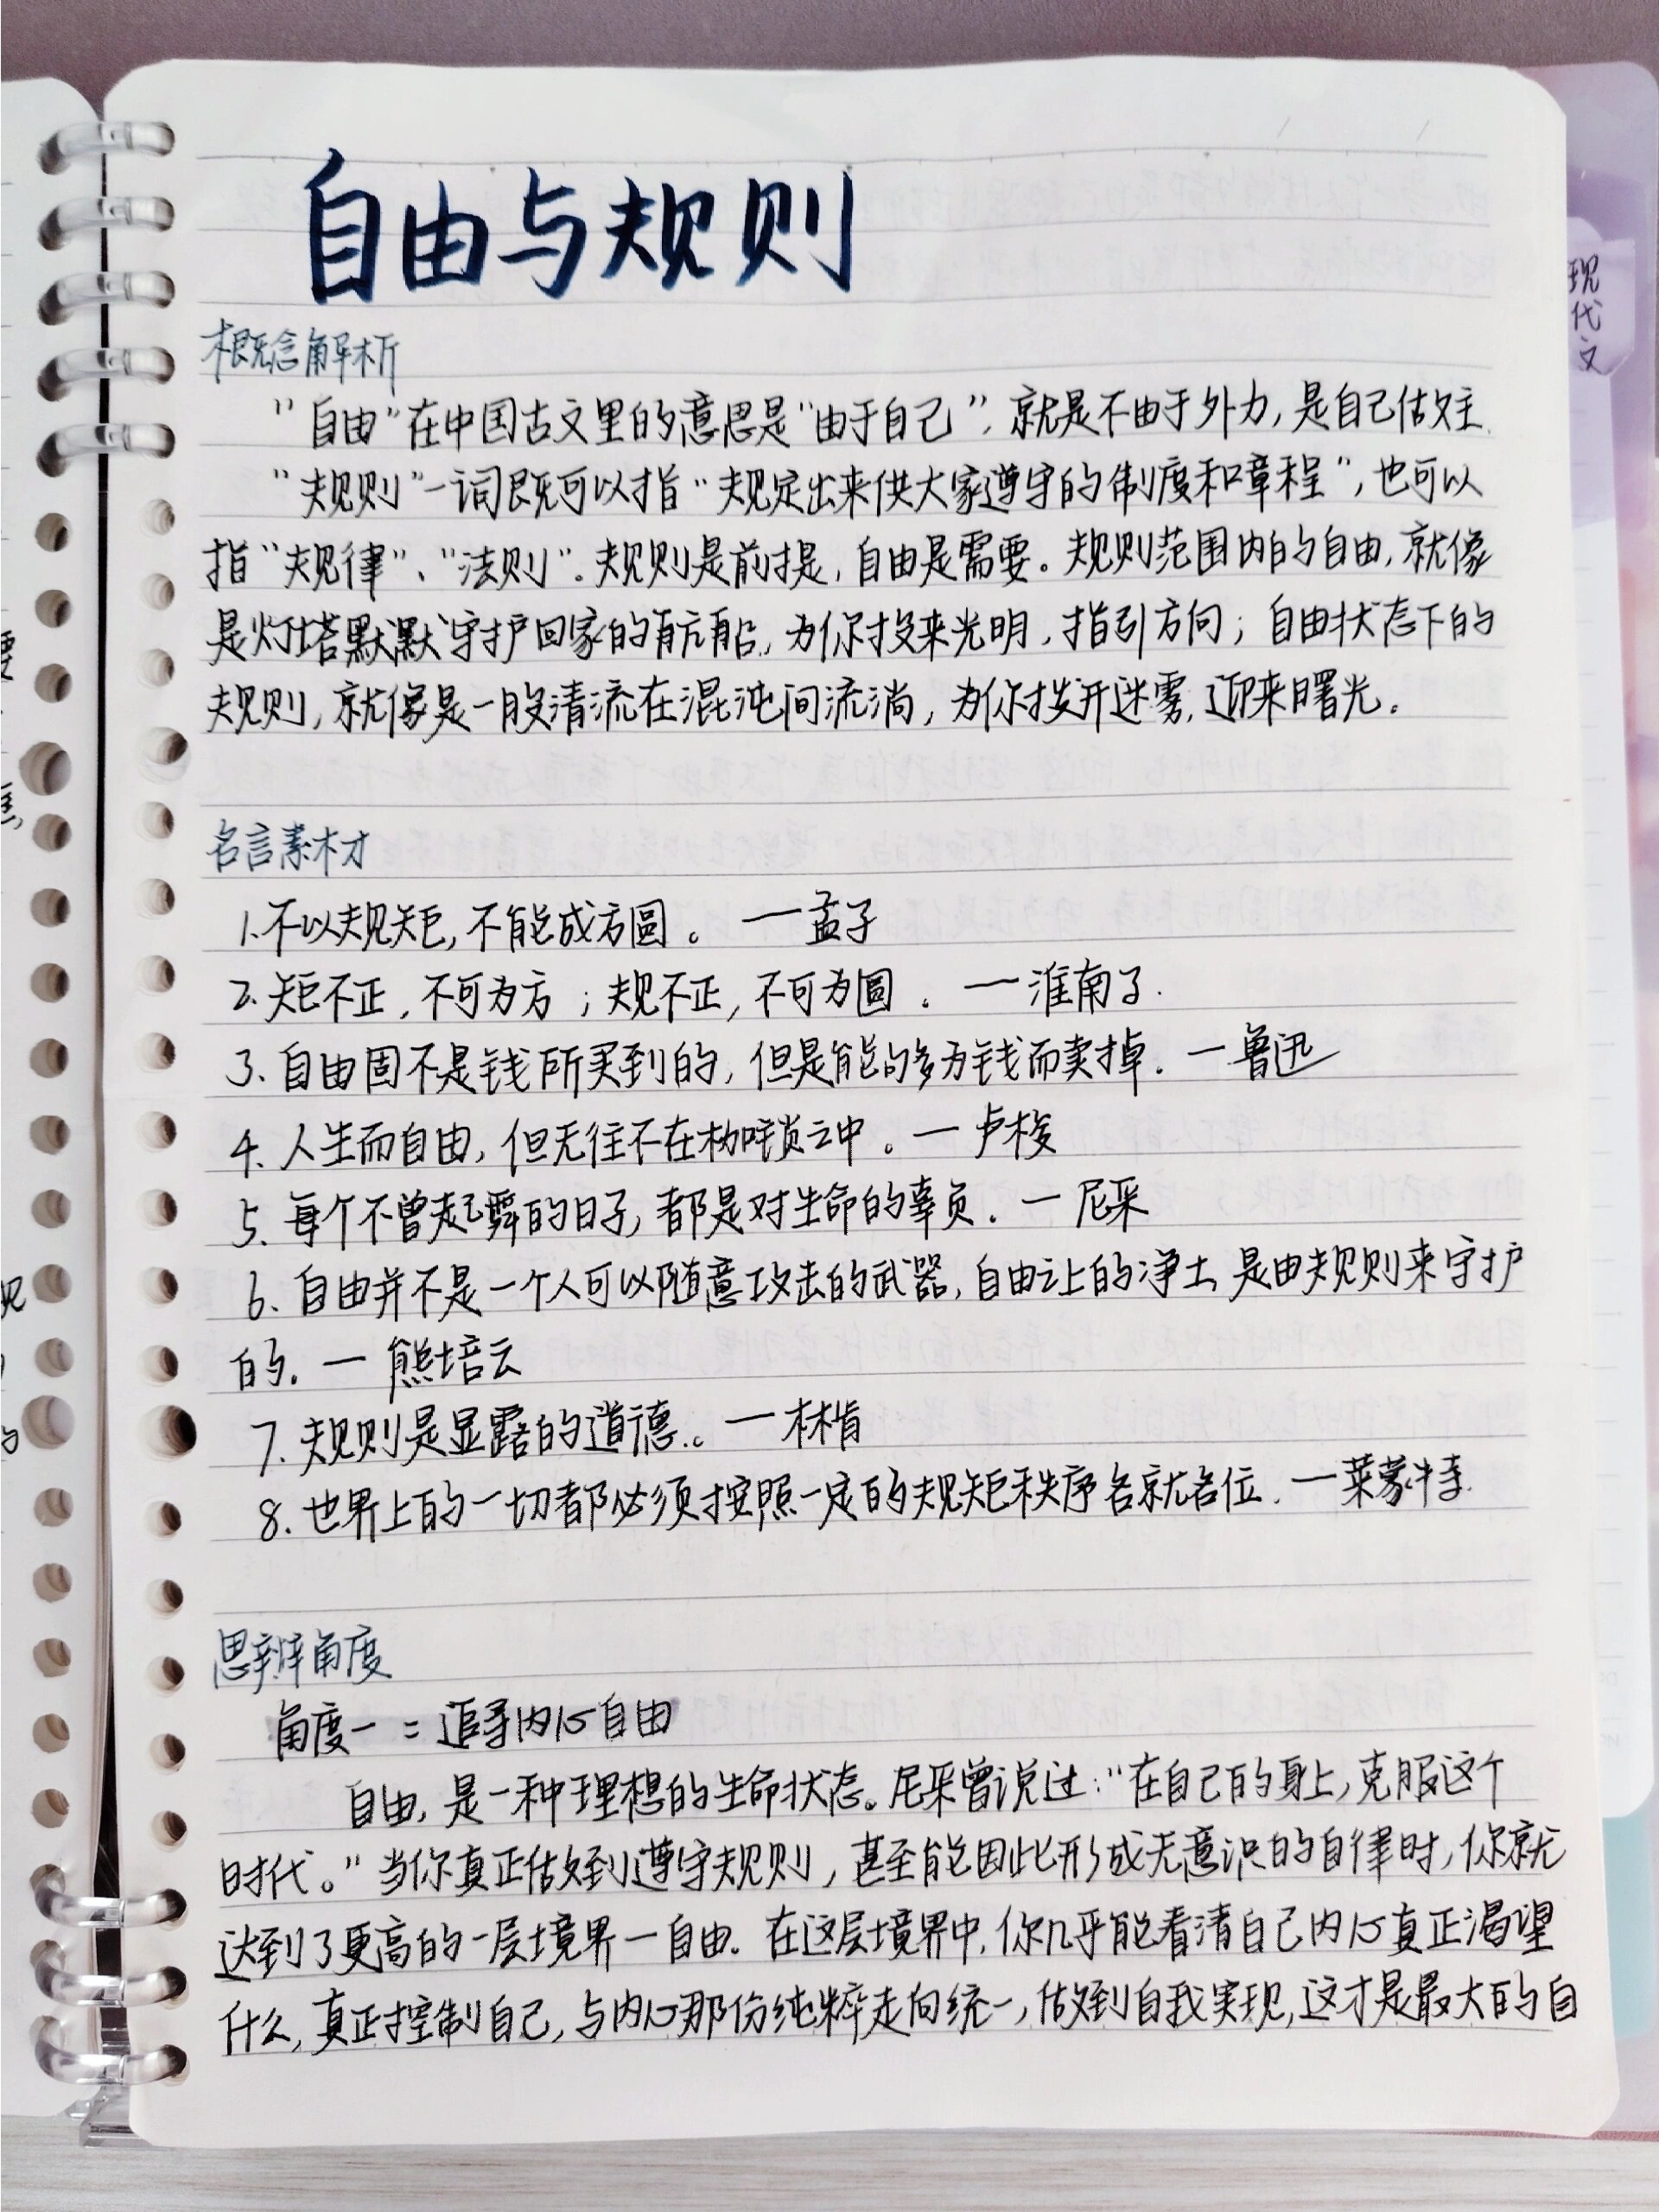 自由与规则
概念解析
“自由”在中国古文里的意思是“由于自己”,就是不由于外力,是自己做主.
“规则”一词既可以指“规定出来供大家遵守的制度和章程”,也可以
指“规律”、“法则”。规则是前提,自由是需要。规则范围内的自由,就像
是灯塔默默守护回家的航船,为你投来光明,指引方向;自由状态下的
规则,就像是一股清流在混沌间流淌,为你拨开迷雾,迎来曙光。
名言素材
1.不以规矩,不能成方圆。 —孟子
2.矩不正,不可为方;规不正,不可为圆. —淮南子.
3.自由固不是钱所买到的,但是能够为钱而卖掉. —鲁迅
4.人生而自由,但无往不在枷锁之中。—卢梭
5.每个不曾起舞的日子,都是对生命的辜负. —尼采
6.自由并不是一个人可以随意攻击的武器,自由之上的净土,是由规则来守护
的. —熊培云
7.规则是显露的道德.。—林肯
8.世界上的一切都必须按照一定的规矩秩序各就各位. —莱蒙特.
思辨角度
角度一:追寻内心自由
自由,是一种理想的生命状态。尼采曾说过:“在自己的身上,克服这个
时代。”当你真正做到遵守规则,甚至能因此形成无意识的自律时,你就
达到了更高的一层境界—自由. 在这层境界中,你几乎能看清自己内心真正渴望
什么,真正控制自己,与内心那份纯粹走向统一,做到自我实现,这才是最大的自
现代文